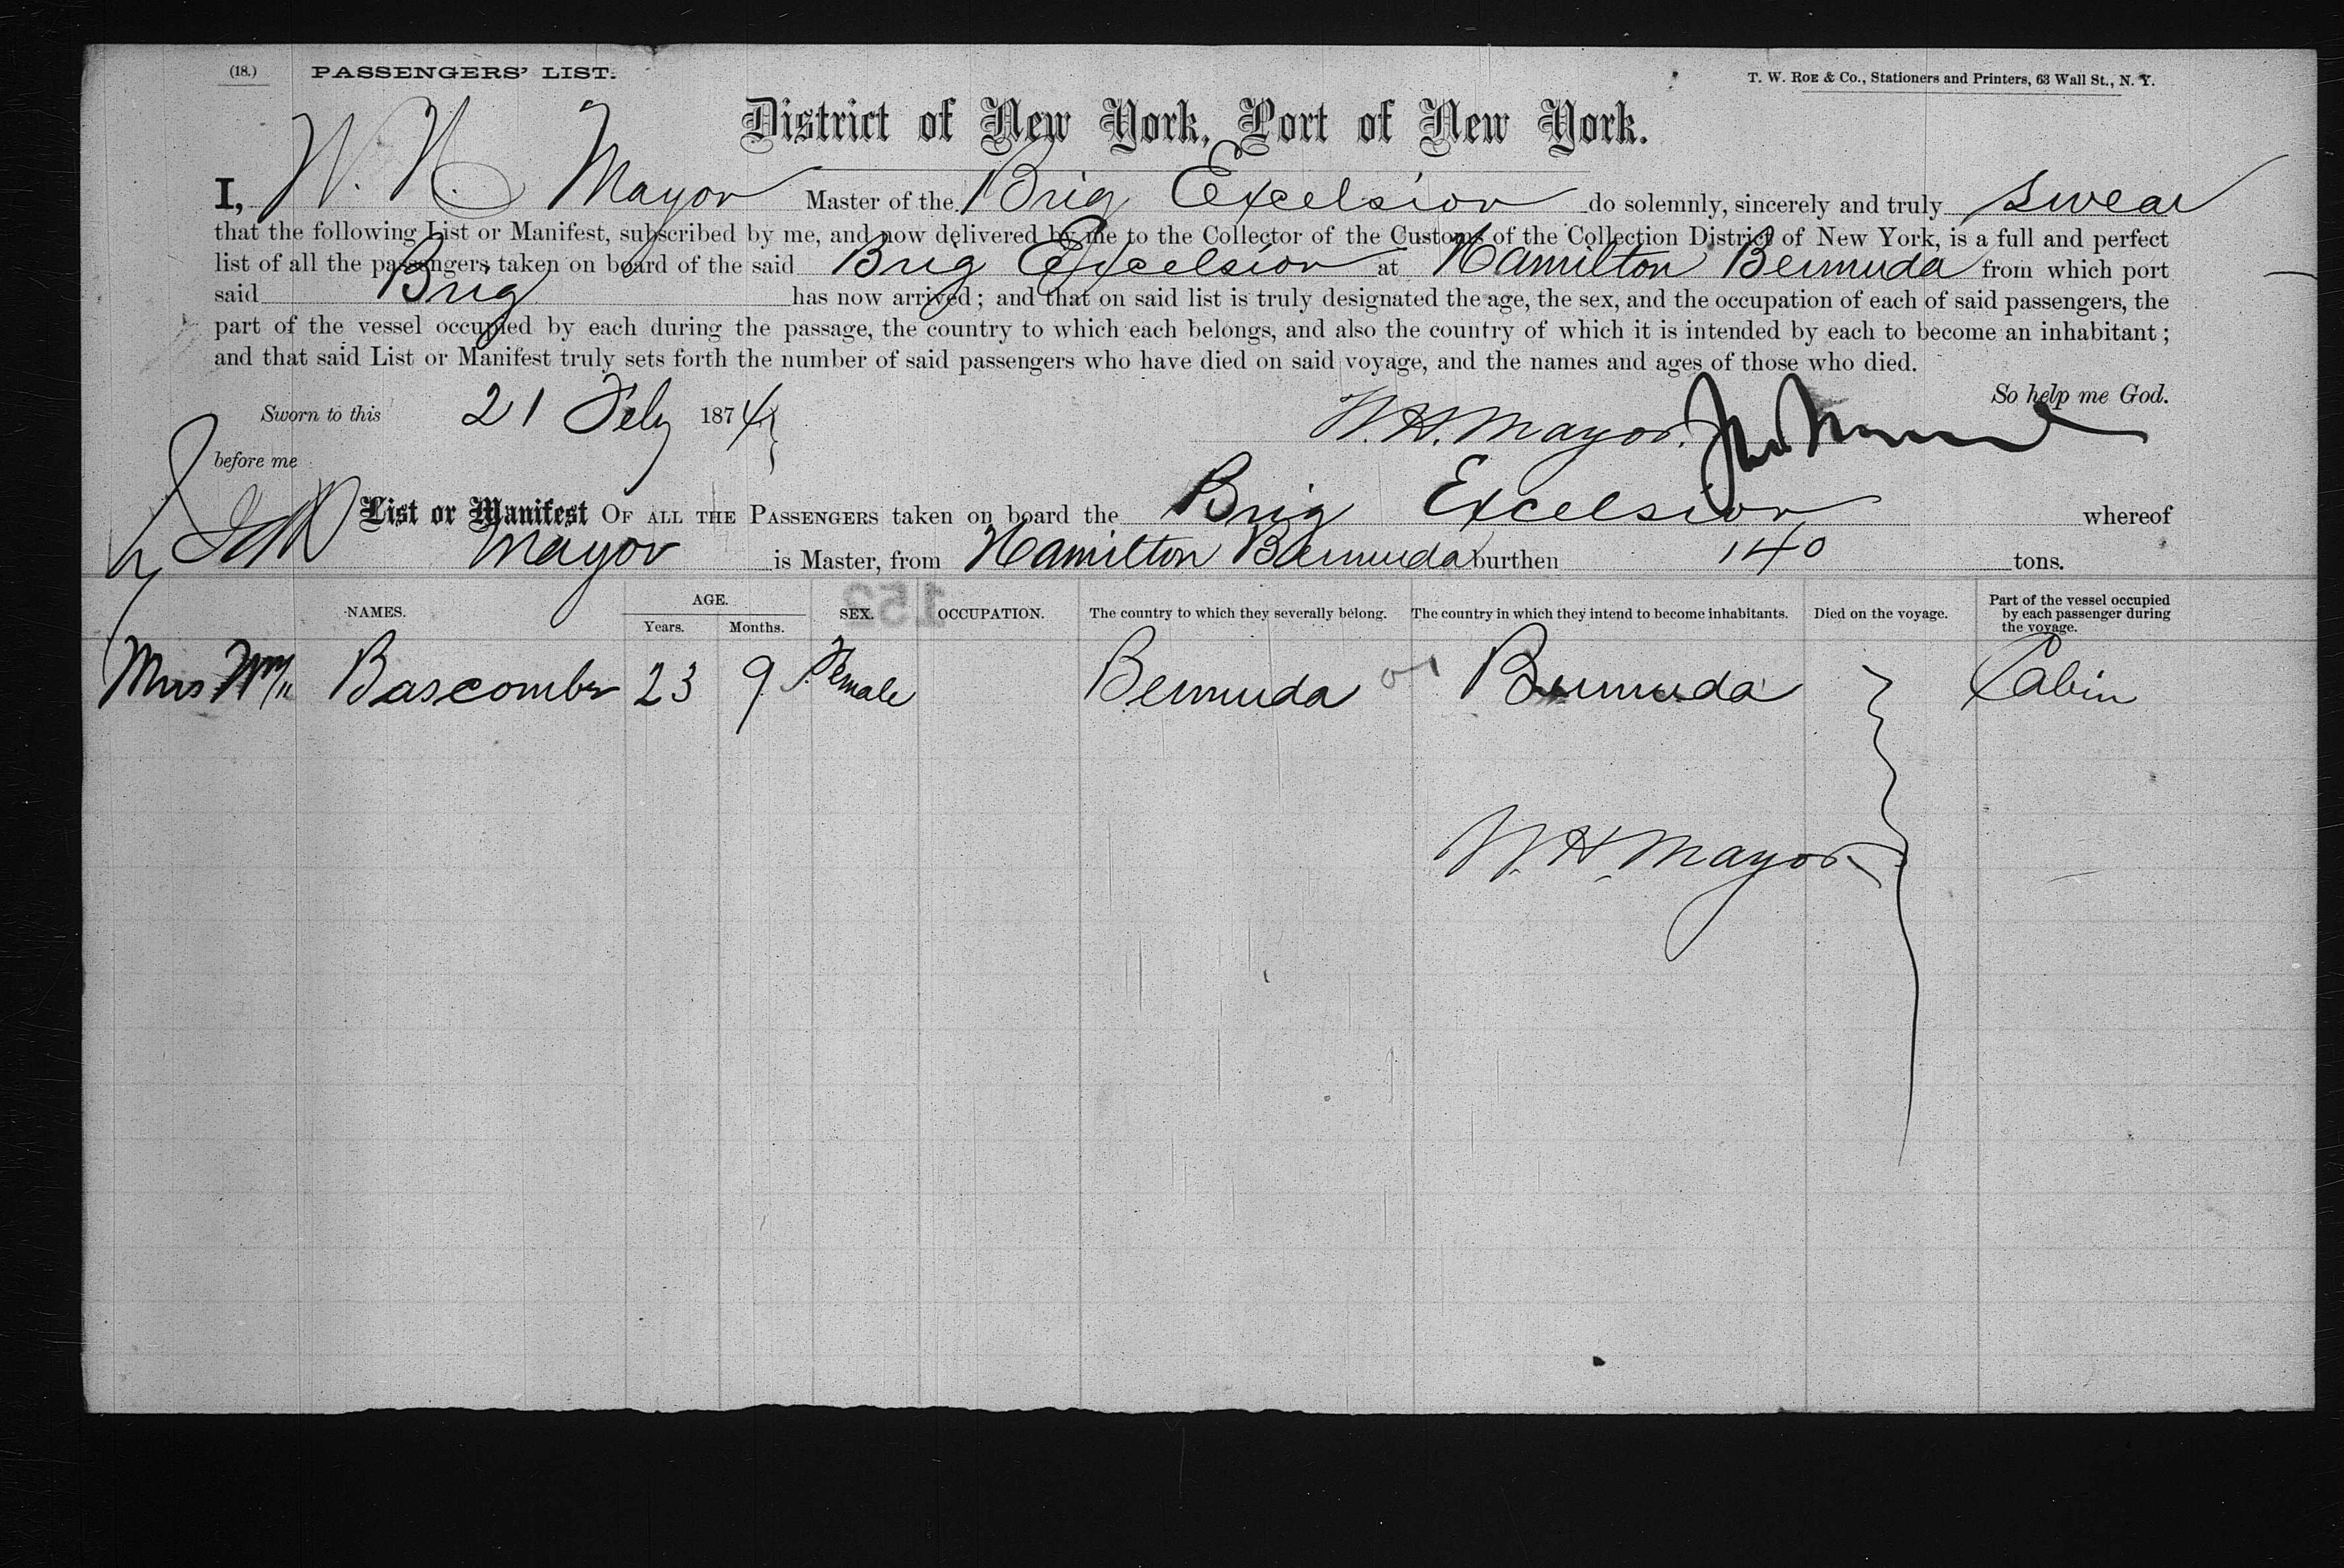 (18.) PASSENGERS' LIST.
T. W. ROE & Co., Stationers and Printers, 63 Wall St., N. Y.
District of New York, Port of New York.
I, W. H. Mayor Master of the Brig Excelsior do solemnly, sincerely and truly swear
that the following List or Manifest, subscribed by me, and now delivered by me to the Collector of the Customs of the Collection District of New York, is a full and perfect
list of all the passengers taken on board of the said Brig Excelsior at Hamilton Bermuda from which port
said Brig has now arrived; and that on said list is truly designated the age, the sex, and the occupation of each of said passengers, the
part of the vessel occupied by each during the passage, the country to which each belongs, and also the country of which it is intended by each to become an inhabitant;
and that said List or Manifest truly sets forth the number of said passengers who have died on said voyage, and the names and ages of those who died.
So help me God.
Sworn to this 21 Feby 1874
W. H. Mayor.
before me
List or Manifest OF ALL THE PASSENGERS taken on board the Brig Excelsior whereof
Mayor is Master, from Hamilton Bermuda burthen 140 tons.
152
NAMES. AGE. Years. Months. SEX. OCCUPATION. The country to which they severally belong. The country in which they intend to become inhabitants. Died on the voyage. Part of the vessel occupied by each passenger during the voyage.
Mrs Wm Bascombe 23 9 Female Bermuda Bermuda Cabin
W. H. Mayor